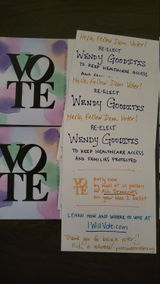 VO
TE
VO
TE
Hello, Fellow Dem. Voter!
RE-ELECT
WENDY GOODITIS
TO KEEP HEALTHCARE ACCESS
Hello, Fellow Dem. Voter!
RE-ELECT
WENDY GOODITIS
Hello, Fellow Dem. Voter!
RE-ELECT
WENDY GOODITIS
TO KEEP HEALTHCARE ACCESS
AND FAMILIES PROTECTED
VOTE
early now
by mail or in person
for ALL DEMOCRATS
on your Nov 2 ballot
LEARN HOW AND WHERE TO VOTE AT
IWillVote.com
Thank you for being a voter!